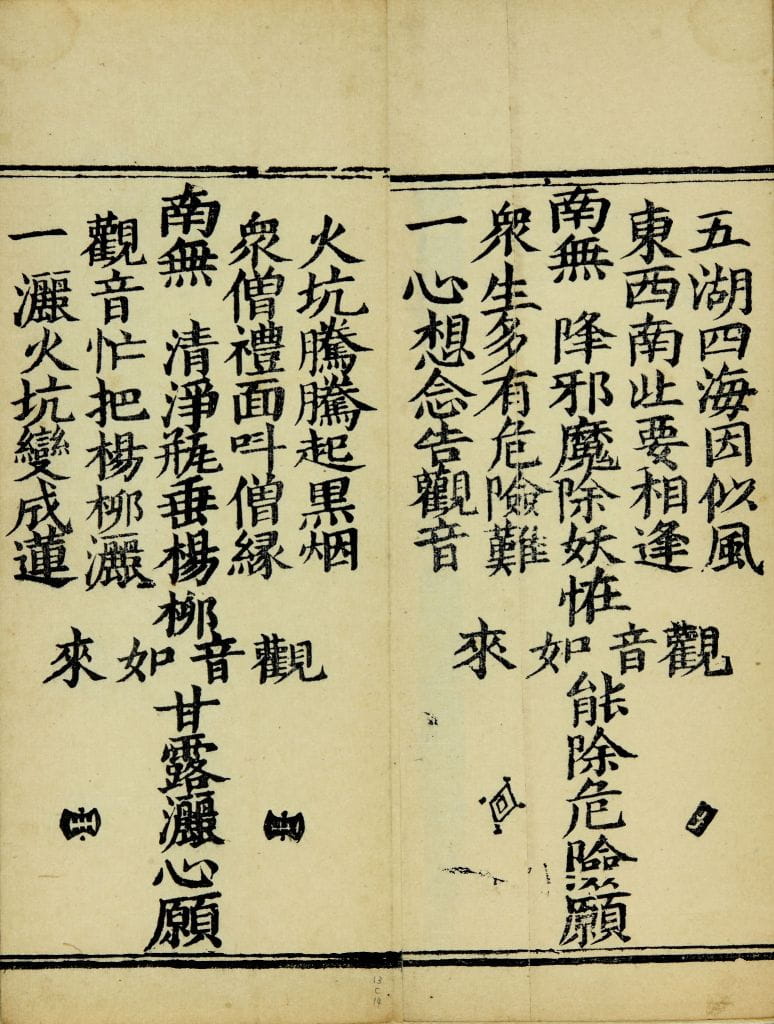 五湖四海因似風
東西南北要相逢
南無 降邪魔除妖恠
衆生多有危險難
一心想念告觀音
觀音如來
能除危險願
火坑騰騰起黒烟
衆僧禮面呌僧縁
南無 清淨瓶垂楊柳
觀音忙把楊柳灑
一灑火坑變成蓮
觀音如來
甘露灑心願